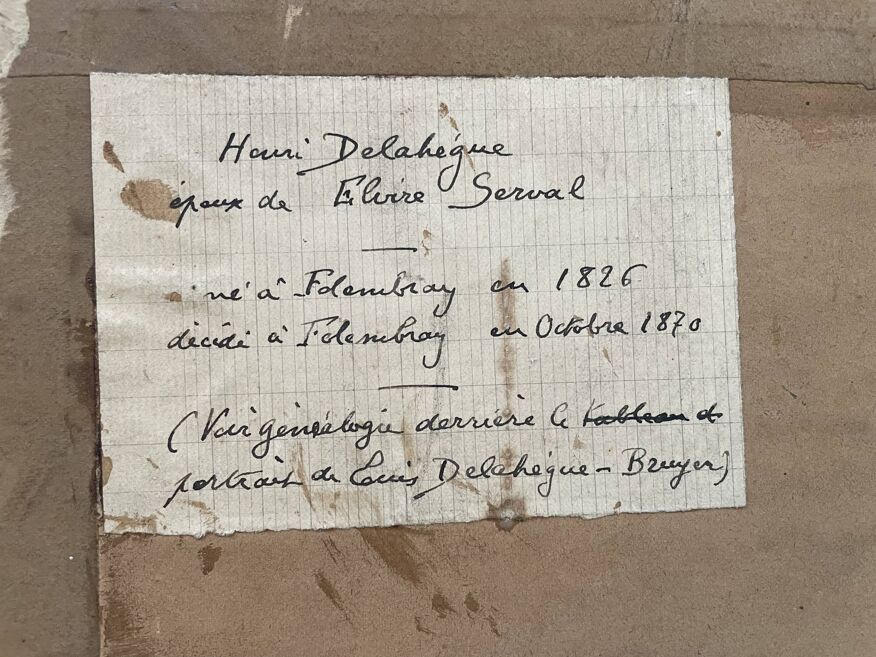 Henri Delahègue
époux de Elvire Serval
né à Folembray en 1826
décédé à Folembray en Octobre 1870
(Voir généalogie derrière le tableau d
portrait de Louis Delahègue - Bruyer)